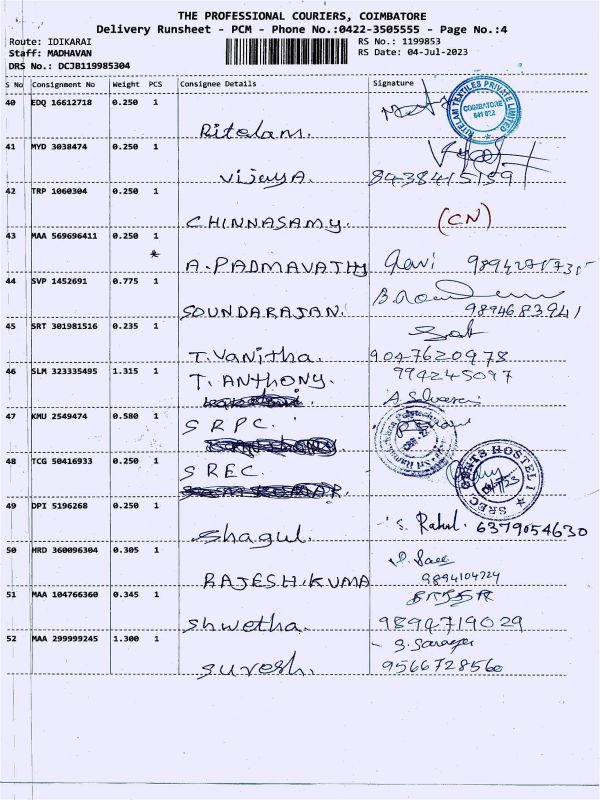 THE PROFESSIONAL COURIERS, COIMBATORE
Delivery Runsheet - PCM - Phone No.:0422-3505555 - Page No.:4
Route: IDIKARAI RS No.: 1199853
Staff: MADHAVAN RS Date: 04-Jul-2023
DRS No.: DCJB119985304
S No Consignment No Weight PCS Consignee Details Signature
40 EDQ 16612718 0.250 1
RITELAM TEXTILES PRIVATE LIMITED
COIMBATORE
641 022
Ritelam.
41 MYD 3038474 0.250 1
VijayA. 8438415159
42 TRP 1060304 0.250 1
CHINNASAMY. (CN)
43 MAA 569696411 0.250 1
A.PADMAVATHY
44 SVP 1452691 0.775 1
SOUNDARAJAN. 9894683941
45 SRT 301981516 0.235 1
T.Vanitha. 9047620978
46 SLM 323335495 1.315 1 994245097
T. ANTHONY.
47 KMU 2549474 0.580 1
SRPC.
48 TCG 50416933 0.250 1
SREC.
SREC GENTS HOSTEL I
49 DPI 5196268 0.250 1
Shagul. S. Rahul. 6379054630
50 HRD 360096304 0.305 1
RAJESH.KUMA 9894104724
51 MAA 104766360 0.345 1
Shwetha. 9894719029
52 MAA 299999245 1.300 1
Suresh. 9566728560